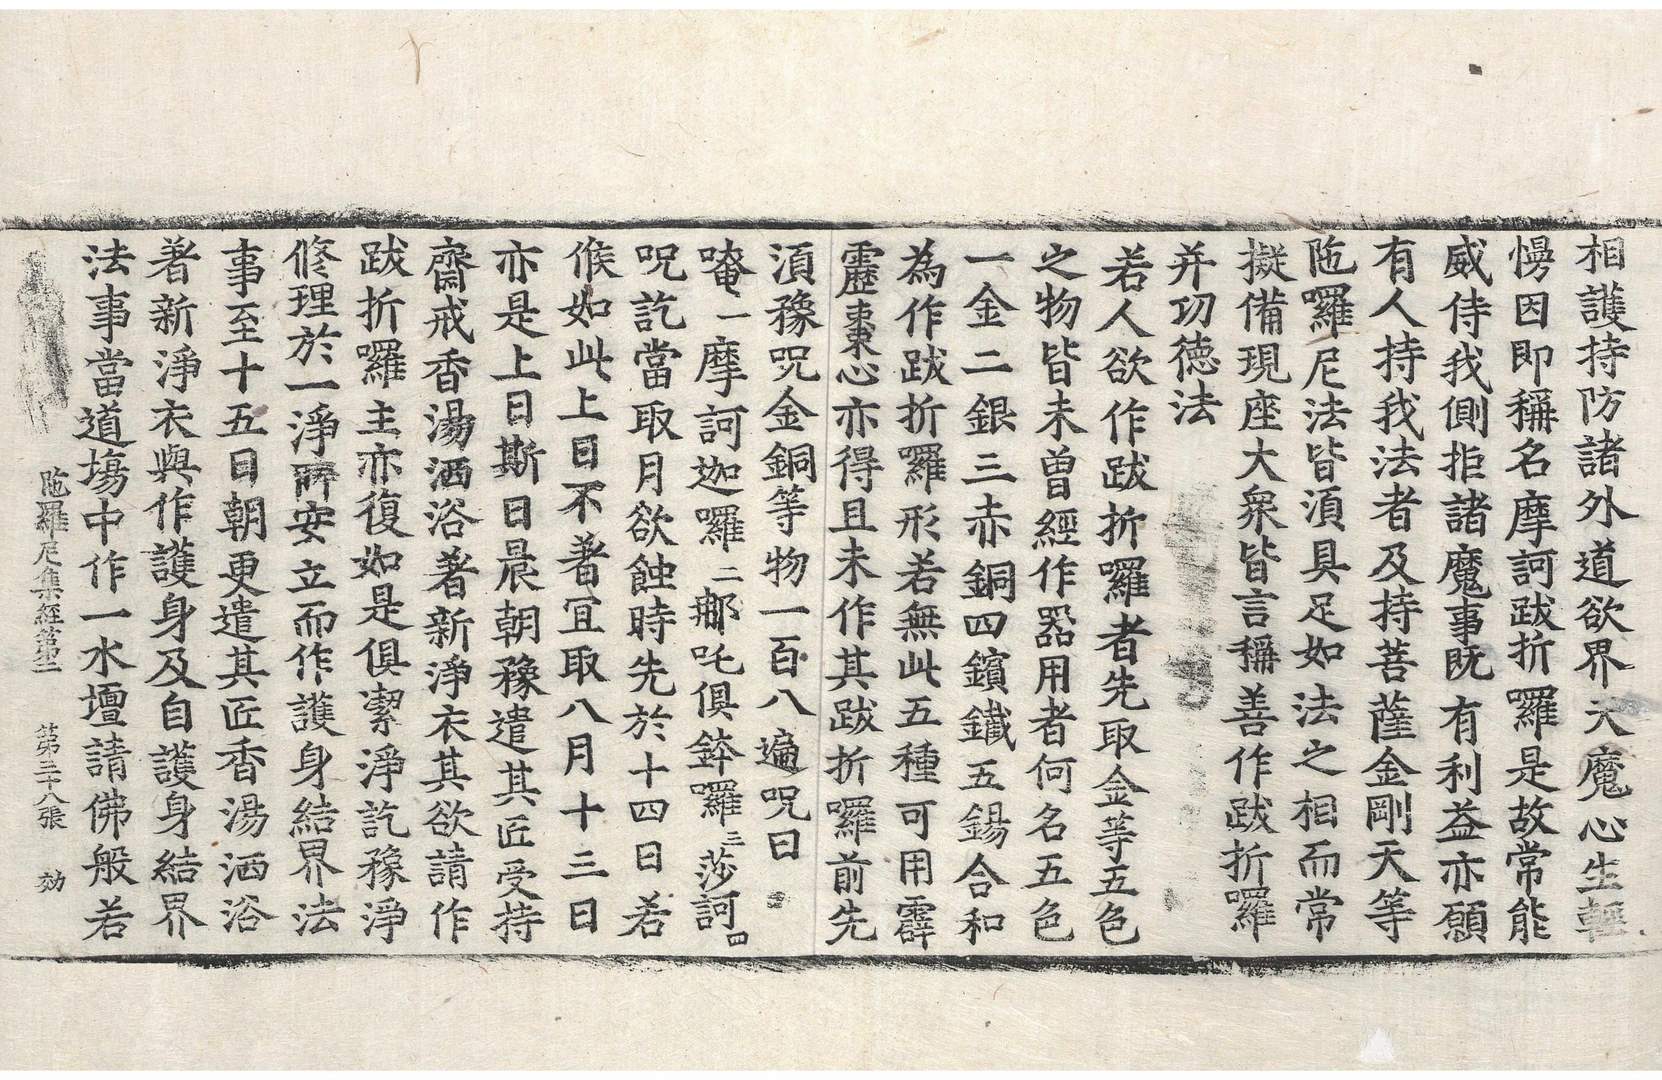 相護持防諸外道欲界天魔心生輕
慢因即稱名摩訶跋折囉是故常能
威侍我側拒諸魔事既有利益亦願
有人持我法者及持菩薩金剛天等
陁囉尼法皆湏具足如法之相而常
擬備現座大衆皆言稱善作跋折囉
并功徳法
若人欲作跋折囉者先取金等五色
之物皆未曾經作器用者何名五色
一金二銀三赤銅四鑌鐵五錫合和
為作跋折囉形若無此五種可用霹
靂棗心亦得且未作其跋折囉前先
湏豫呪金銅等物一百八遍呪曰
唵一摩訶迦囉二那吒俱鉢囉三莎訶四
呪訖當取月欲蝕時先於十四日若
候如此上日不著宜取八月十三日
亦是上日斯日晨朝豫遣其匠受持
齋戒香湯洒浴著新淨衣其欲請作
跋折囉主亦復如是俱潔淨訖豫淨
修理於一淨安立而作護身結界法
事至十五日朝更遣其匠香湯洒浴
著新淨衣與作護身及自護身結界
法事當道塲中作一水壇請佛般若
陁羅尼集經第二 第三十八張 効